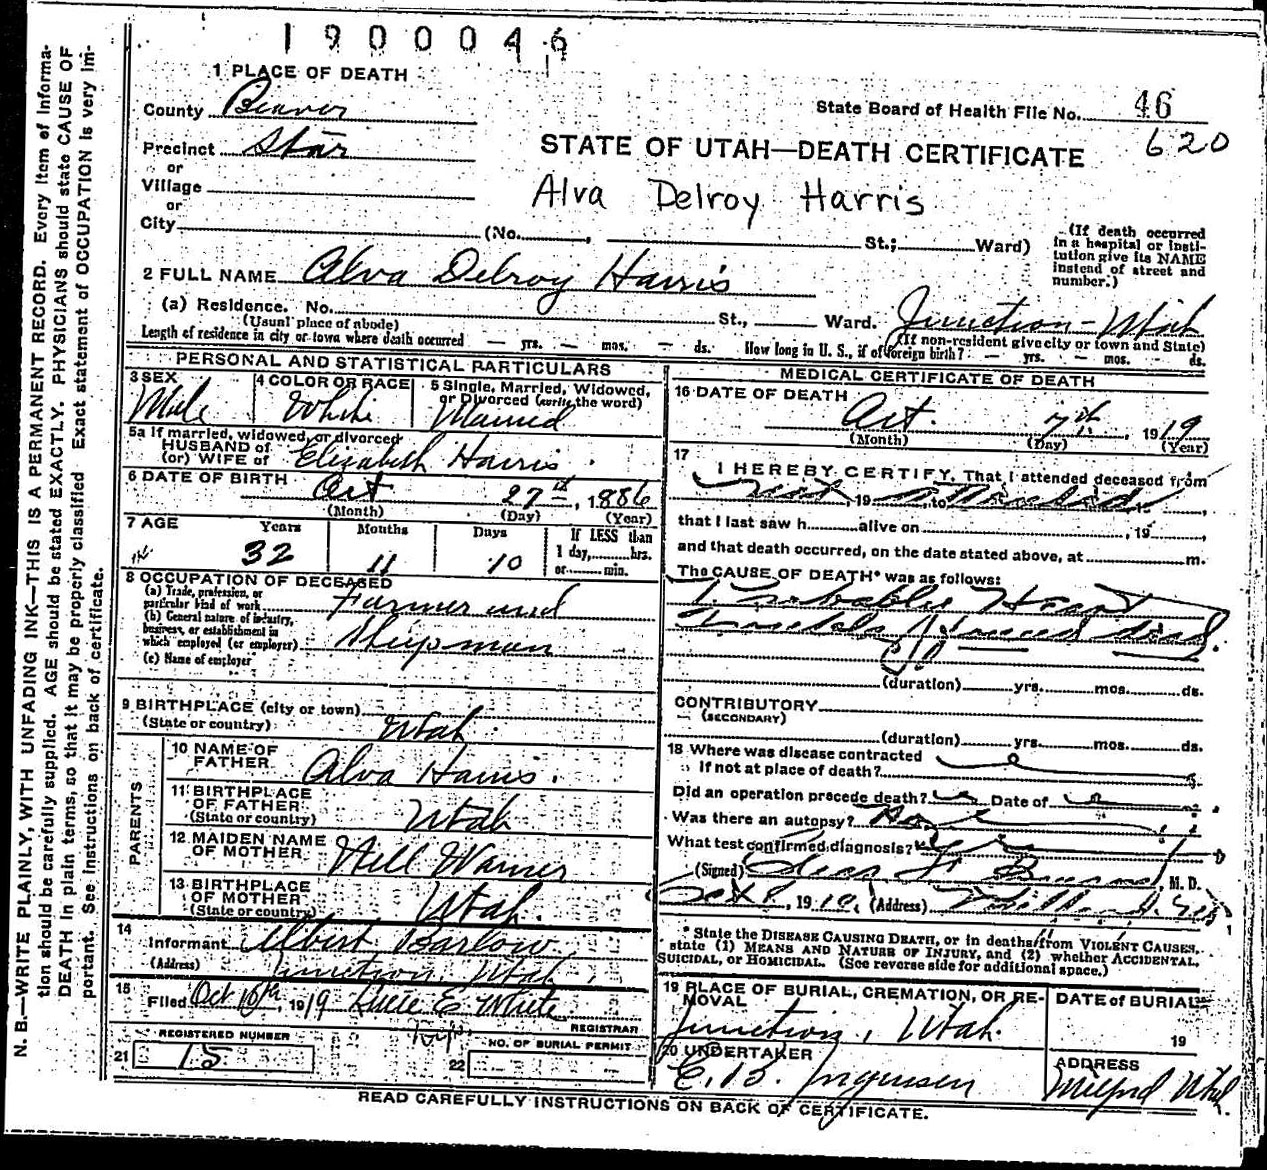 1900046
1 PLACE OF DEATH
County Beaver
State Board of Health File No. 46
Precinct Star
620
or
STATE OF UTAH—DEATH CERTIFICATE
Village
Alva Delroy Harris
or
City (No. , St.; Ward)
(If death occurred
in a hospital or insti-
tution give its NAME
instead of street and
number.)
2 FULL NAME Alva Delroy Harris
(a) Residence. No. St., Ward. Junction - Utah
(Usual place of abode) (If non-resident give city or town and State)
Length of residence in city or town where death occurred — yrs. — mos. — ds. How long in U. S., if of foreign birth? — yrs. — mos. ds.
PERSONAL AND STATISTICAL PARTICULARS
3 SEX
Male
4 COLOR OR RACE
White
5 Single, Married, Widowed,
or Divorced (write the word)
Married
5a If married, widowed, or divorced
HUSBAND of
(or) WIFE of Elizabeth Harris
6 DATE OF BIRTH
Oct 27th, 1886
(Month) (Day) (Year)
7 AGE
Years Months Days
32 11 10
If LESS than
1 day, hrs.
or min.
8 OCCUPATION OF DECEASED
(a) Trade, profession, or
particular kind of work Farmer and
(b) General nature of industry,
business, or establishment in
which employed (or employer) Sheepman
(c) Name of employer
9 BIRTHPLACE (city or town)
(State or country) Utah
PARENTS
10 NAME OF
FATHER Alva Harris.
11 BIRTHPLACE
OF FATHER
(State or country) Utah
12 MAIDEN NAME
OF MOTHER Nell Warner
13 BIRTHPLACE
OF MOTHER
(State or country) Utah.
14
Informant Albert Barlow
(Address) Junction, Utah
15
Filed Oct 10th, 1919 Lucie E White
REGISTRAR
REGISTERED NUMBER
21 15
NO. OF BURIAL PERMIT
22
MEDICAL CERTIFICATE OF DEATH
16 DATE OF DEATH
Oct. 7th, 1919
(Month) (Day) (Year)
17
I HEREBY CERTIFY, That I attended deceased from
, 19 , to ,
that I last saw h alive on , 19 ,
and that death occurred, on the date stated above, at m.
The CAUSE OF DEATH* was as follows:
Probably Heart
Trouble found dead
(duration) yrs. mos. ds.
CONTRIBUTORY
(SECONDARY)
(duration) yrs. mos. ds.
18 Where was disease contracted
If not at place of death?
Did an operation precede death? Date of
Was there an autopsy? No
What test confirmed diagnosis?
(Signed) , M. D.
, 1919, (Address)
* State the DISEASE CAUSING DEATH, or in deaths from VIOLENT CAUSES,
state (1) MEANS AND NATURE OF INJURY, and (2) whether ACCIDENTAL,
SUICIDAL, or HOMICIDAL. (See reverse side for additional space.)
19 PLACE OF BURIAL, CREMATION, OR RE-
MOVAL
Junction, Utah.
DATE of BURIAL
19
20 UNDERTAKER
E. B. Jorgensen
ADDRESS
Milford Utah
READ CAREFULLY INSTRUCTIONS ON BACK OF CERTIFICATE.
N. B.—WRITE PLAINLY, WITH UNFADING INK—THIS IS A PERMANENT RECORD. Every item of informa-
tion should be carefully supplied. AGE should be stated EXACTLY. PHYSICIANS should state CAUSE OF
DEATH in plain terms, so that it may be properly classified Exact statement of OCCUPATION is very im-
portant. See instructions on back of certificate.